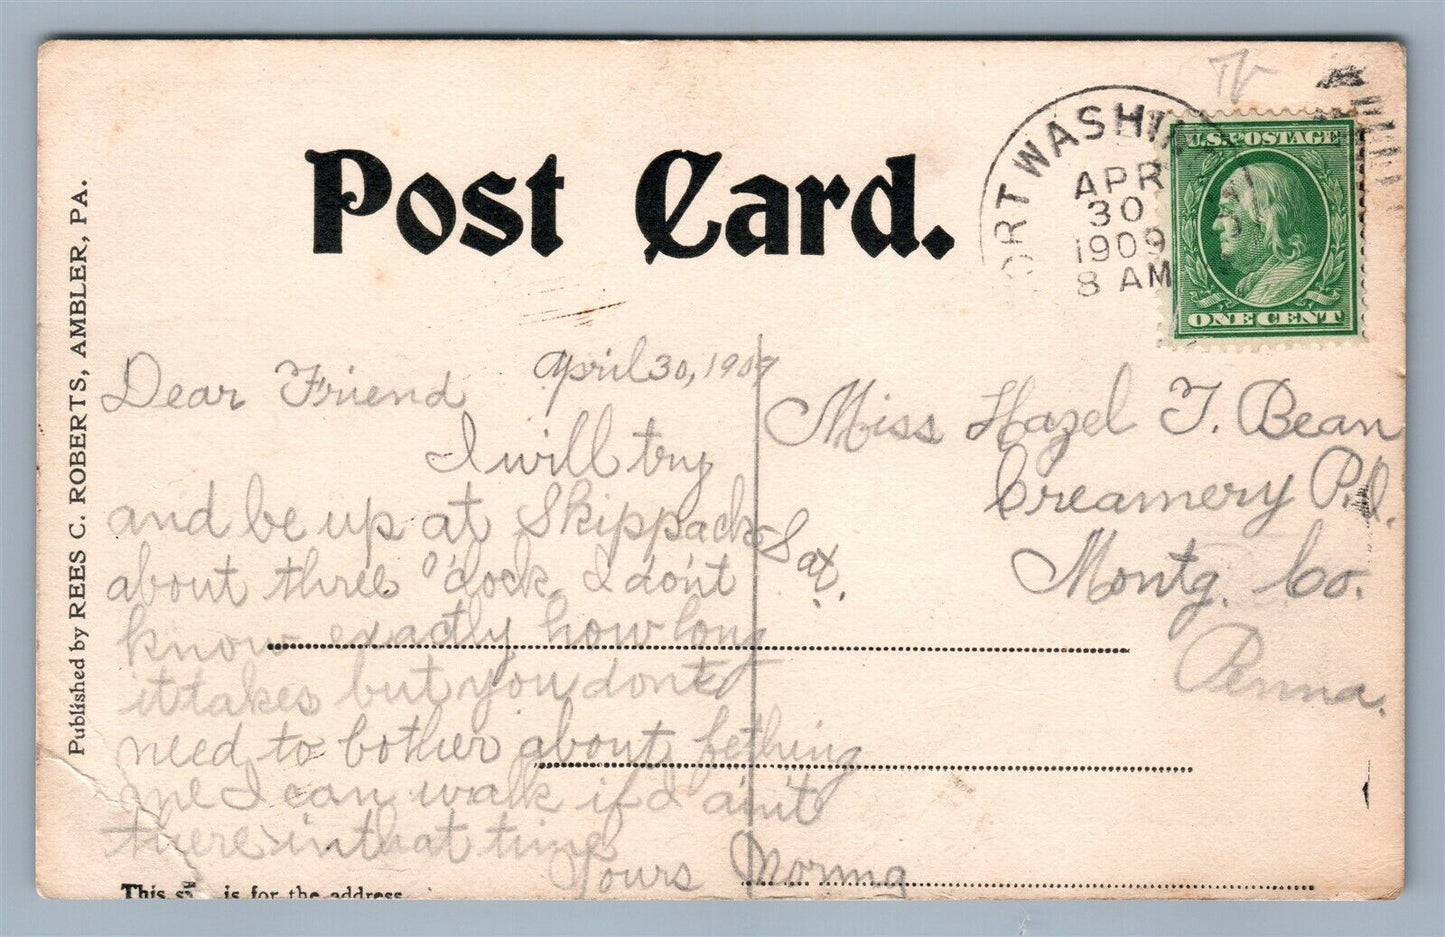 Post Card.
Published by REES C. ROBERTS, AMBLER, PA.
ORT WASHIN
APR
30
1909
8 AM
U.S. POSTAGE
ONE CENT
April 30, 1909
Dear Friend
I will try
and be up at Skippack Sat.
about three o'clock. I don't
know exactly how long
it takes but you dont
need to bother about fething
me I can walk if I ain't
there in that time
Yours
Miss Hazel T. Bean
Creamery P.O.
Montg. Co.
Penna.
This is for the address